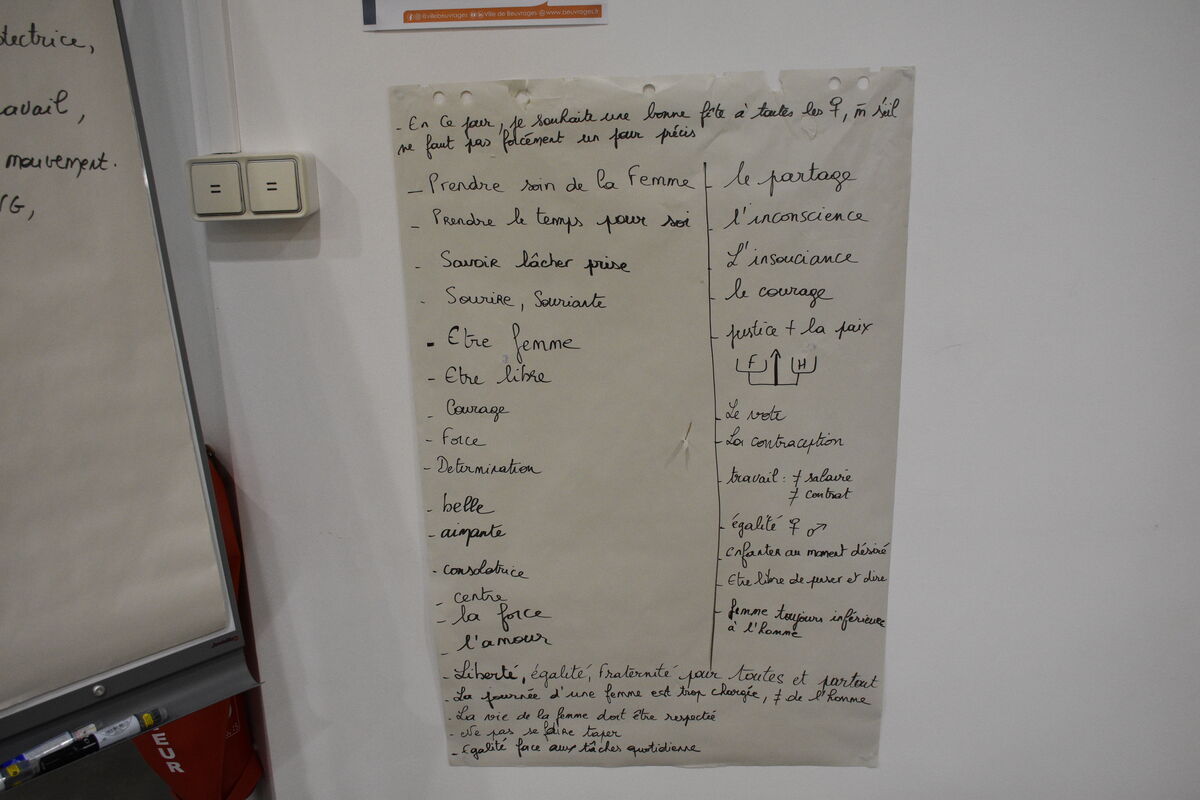 @villebeuvrages Ville de Beuvrages www.beuvrages.fr
tectrice,
avail,
mouvement.
- En ce jour, je souhaite une bonne fête à toutes les ♀, m̄ s'il
ne faut pas forcément un jour précis
- Prendre soin de la Femme
- Prendre le temps pour soi
- Savoir lâcher prise
- Sourire, Souriante
- Etre femme
- Etre libre
- Courage
- Force
- Determination
- belle
- aimante
- consolatrice
- centre
- la force
- l'amour
- le partage
- l'inconscience
- L'insouciance
- le courage
- justice + la paix
F H
- Le vote
- La contraception
- travail : ≠ salaire
≠ contrat
- égalité ♀ ♂
- enfanter au moment désiré
- Etre libre de penser et dire
- femme toujours inférieure
à l'homme
- Liberté, égalité, Fraternité pour toutes et partout
- La journée d'une femme est trop chargée, ≠ de l'homme
- La vie de la femme doit être respectée
- Ne pas se faire taper
- Egalité face aux tâches quotidienne
EUR